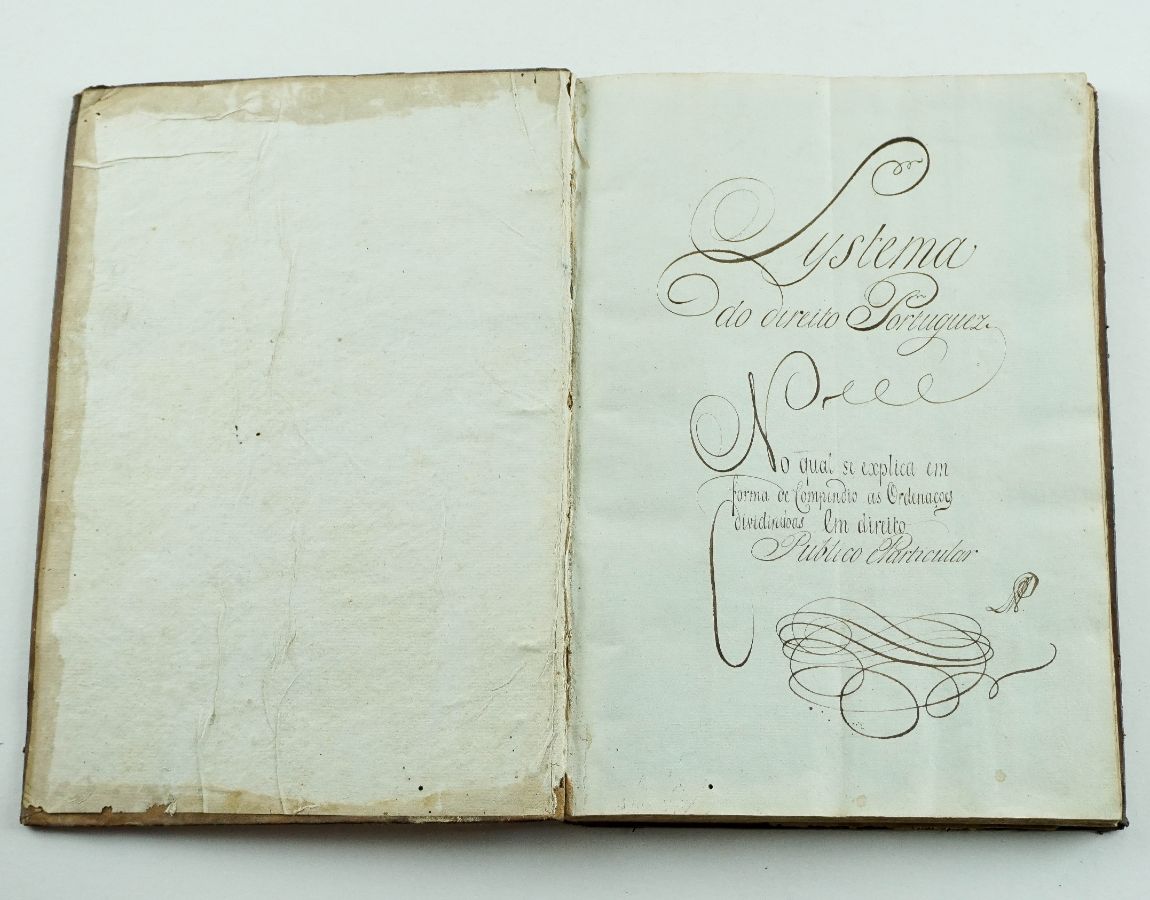 Systema
do direito Portuguez
No qual se explica em
forma de Compendio as Ordenaçoẽs
em direito
Publico e Particular